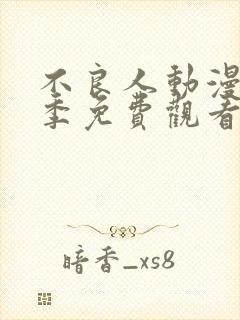 不良人動漫
季免費觀看
暗香_xs8